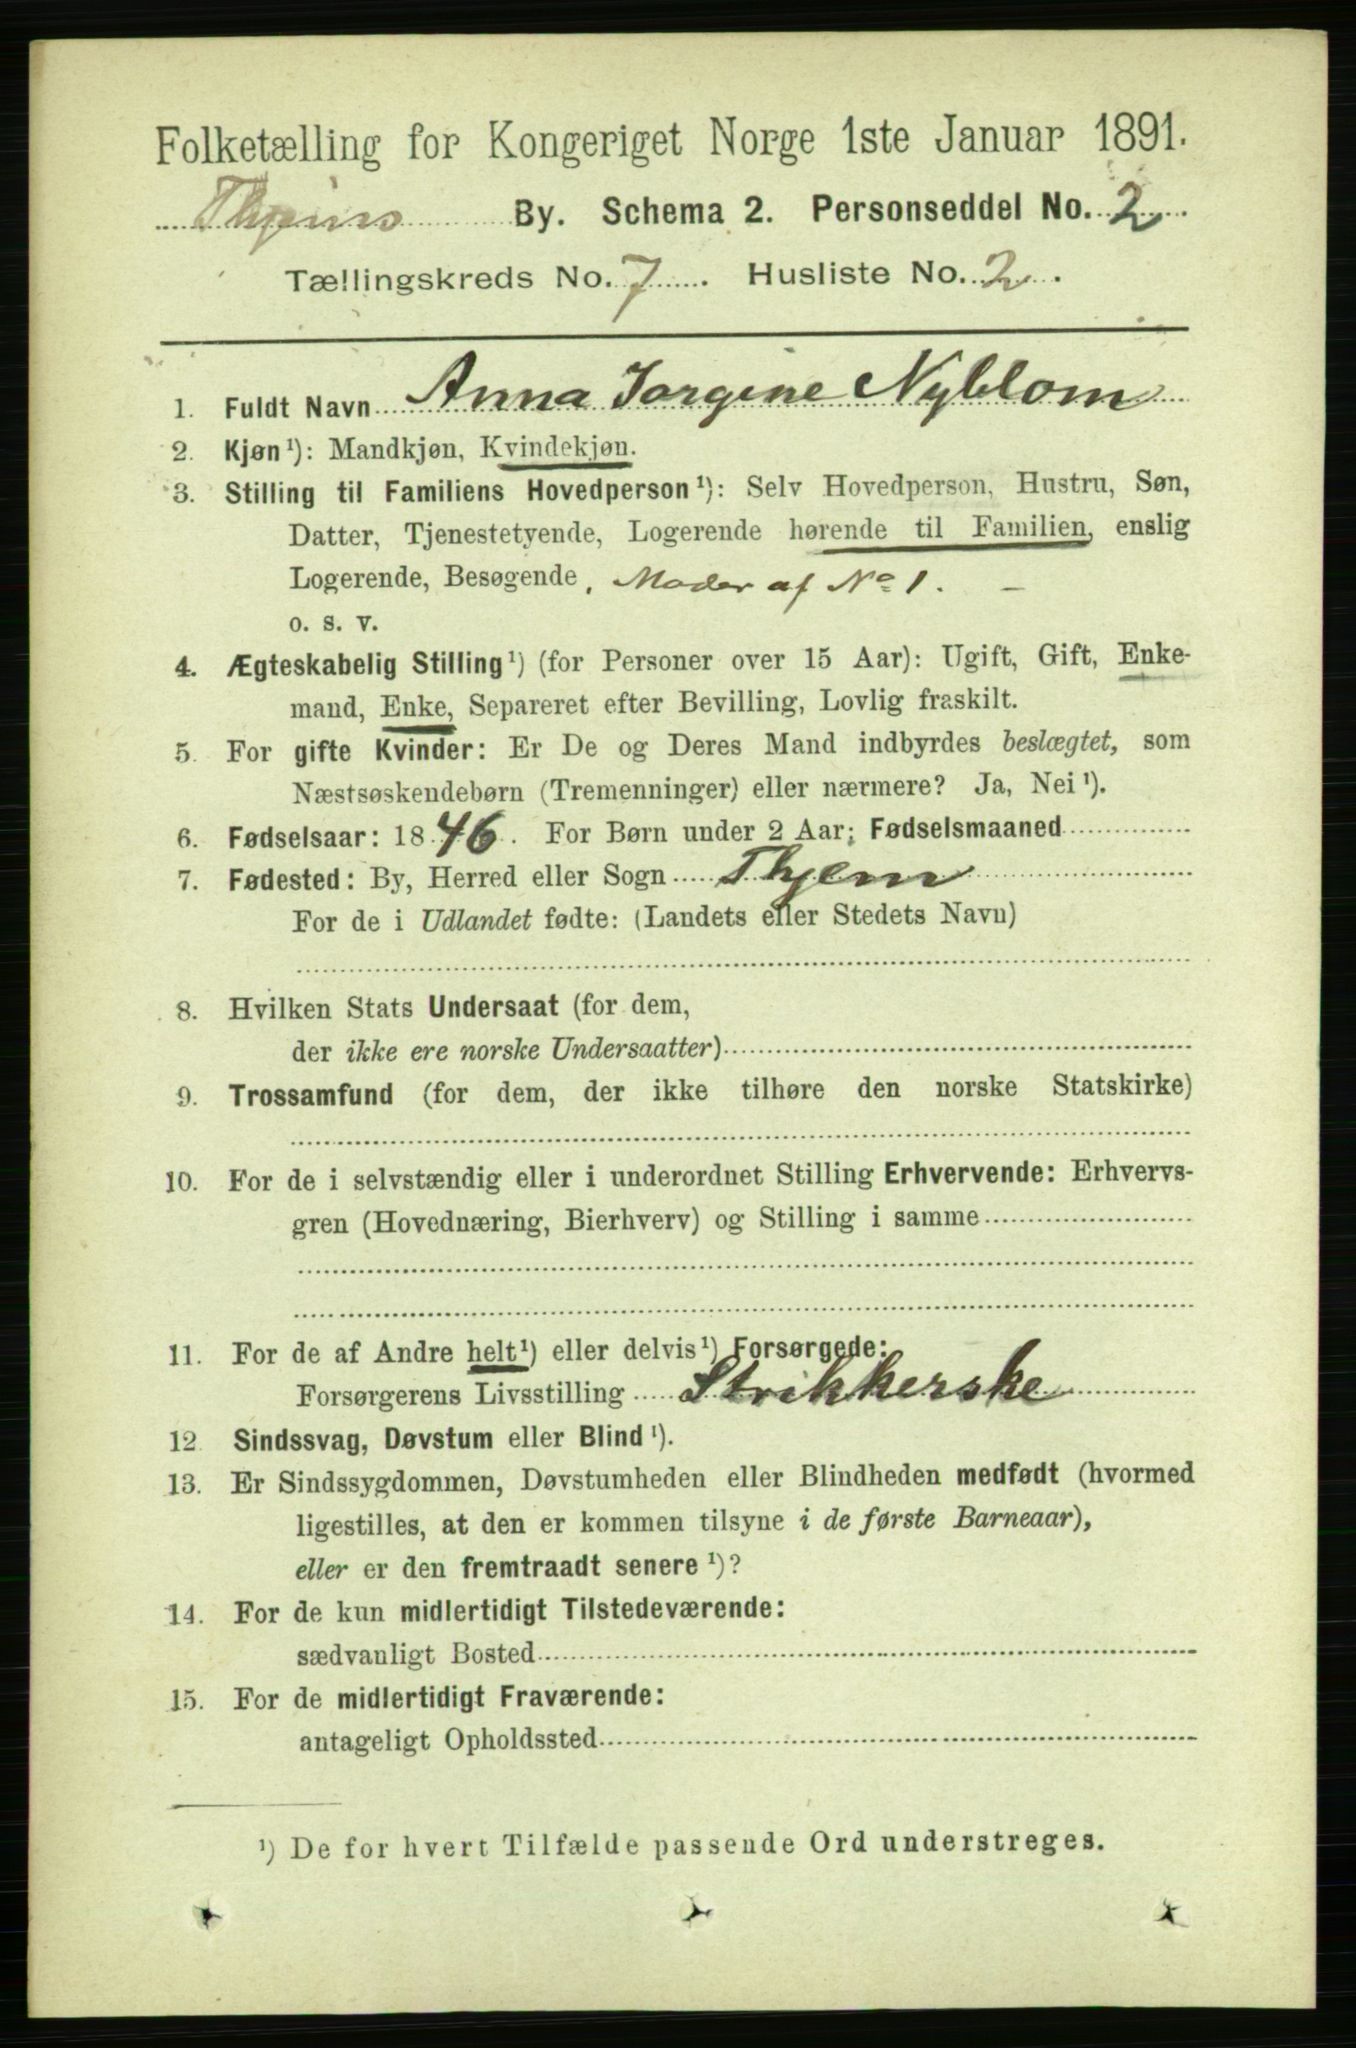 Folketælling for Kongeriget Norge 1ste Januar 1891.
By. Schema 2. Personseddel No. 2.
Tællingskreds No. 7. Husliste No. 2.
1. Fuldt Navn Anna Jorgine Nyblom
2. Kjøn¹): Mandkjøn, Kvindekjøn.
3. Stilling til Familiens Hovedperson¹): Selv Hovedperson, Hustru, Søn,
Datter, Tjenestetyende, Logerende hørende til Familien, enslig
Logerende, Besøgende, Moder af No 1. –
o. s. v.
4. Ægteskabelig Stilling¹) (for Personer over 15 Aar): Ugift, Gift, Enke-
mand, Enke, Separeret efter Bevilling, Lovlig fraskilt.
5. For gifte Kvinder: Er De og Deres Mand indbyrdes beslægtet, som
Næstsøskendebørn (Tremenninger) eller nærmere? Ja, Nei¹).
6. Fødselsaar: 1846. For Børn under 2 Aar; Fødselsmaaned
7. Fødested: By, Herred eller Sogn Thjem
For de i Udlandet fødte: (Landets eller Stedets Navn)
8. Hvilken Stats Undersaat (for dem,
der ikke ere norske Undersaatter)
9. Trossamfund (for dem, der ikke tilhøre den norske Statskirke)
10. For de i selvstændig eller i underordnet Stilling Erhvervende: Erhvervs-
gren (Hovednæring, Bierhverv) og Stilling i samme
11. For de af Andre helt¹) eller delvis¹) Forsørgede:
Forsørgerens Livsstilling Strikkerske
12 Sindssvag, Døvstum eller Blind¹).
13. Er Sindssygdommen, Døvstumheden eller Blindheden medfødt (hvormed
ligestilles, at den er kommen tilsyne i de første Barneaar),
eller er den fremtraadt senere¹)?
14. For de kun midlertidigt Tilstedeværende:
sædvanligt Bosted
15. For de midlertidigt Fraværende:
antageligt Opholdssted
¹) De for hvert Tilfælde passende Ord understreges.